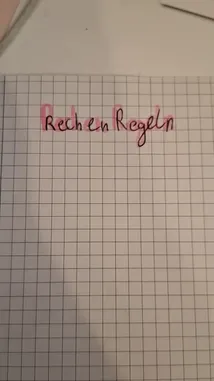 Rechen Regeln